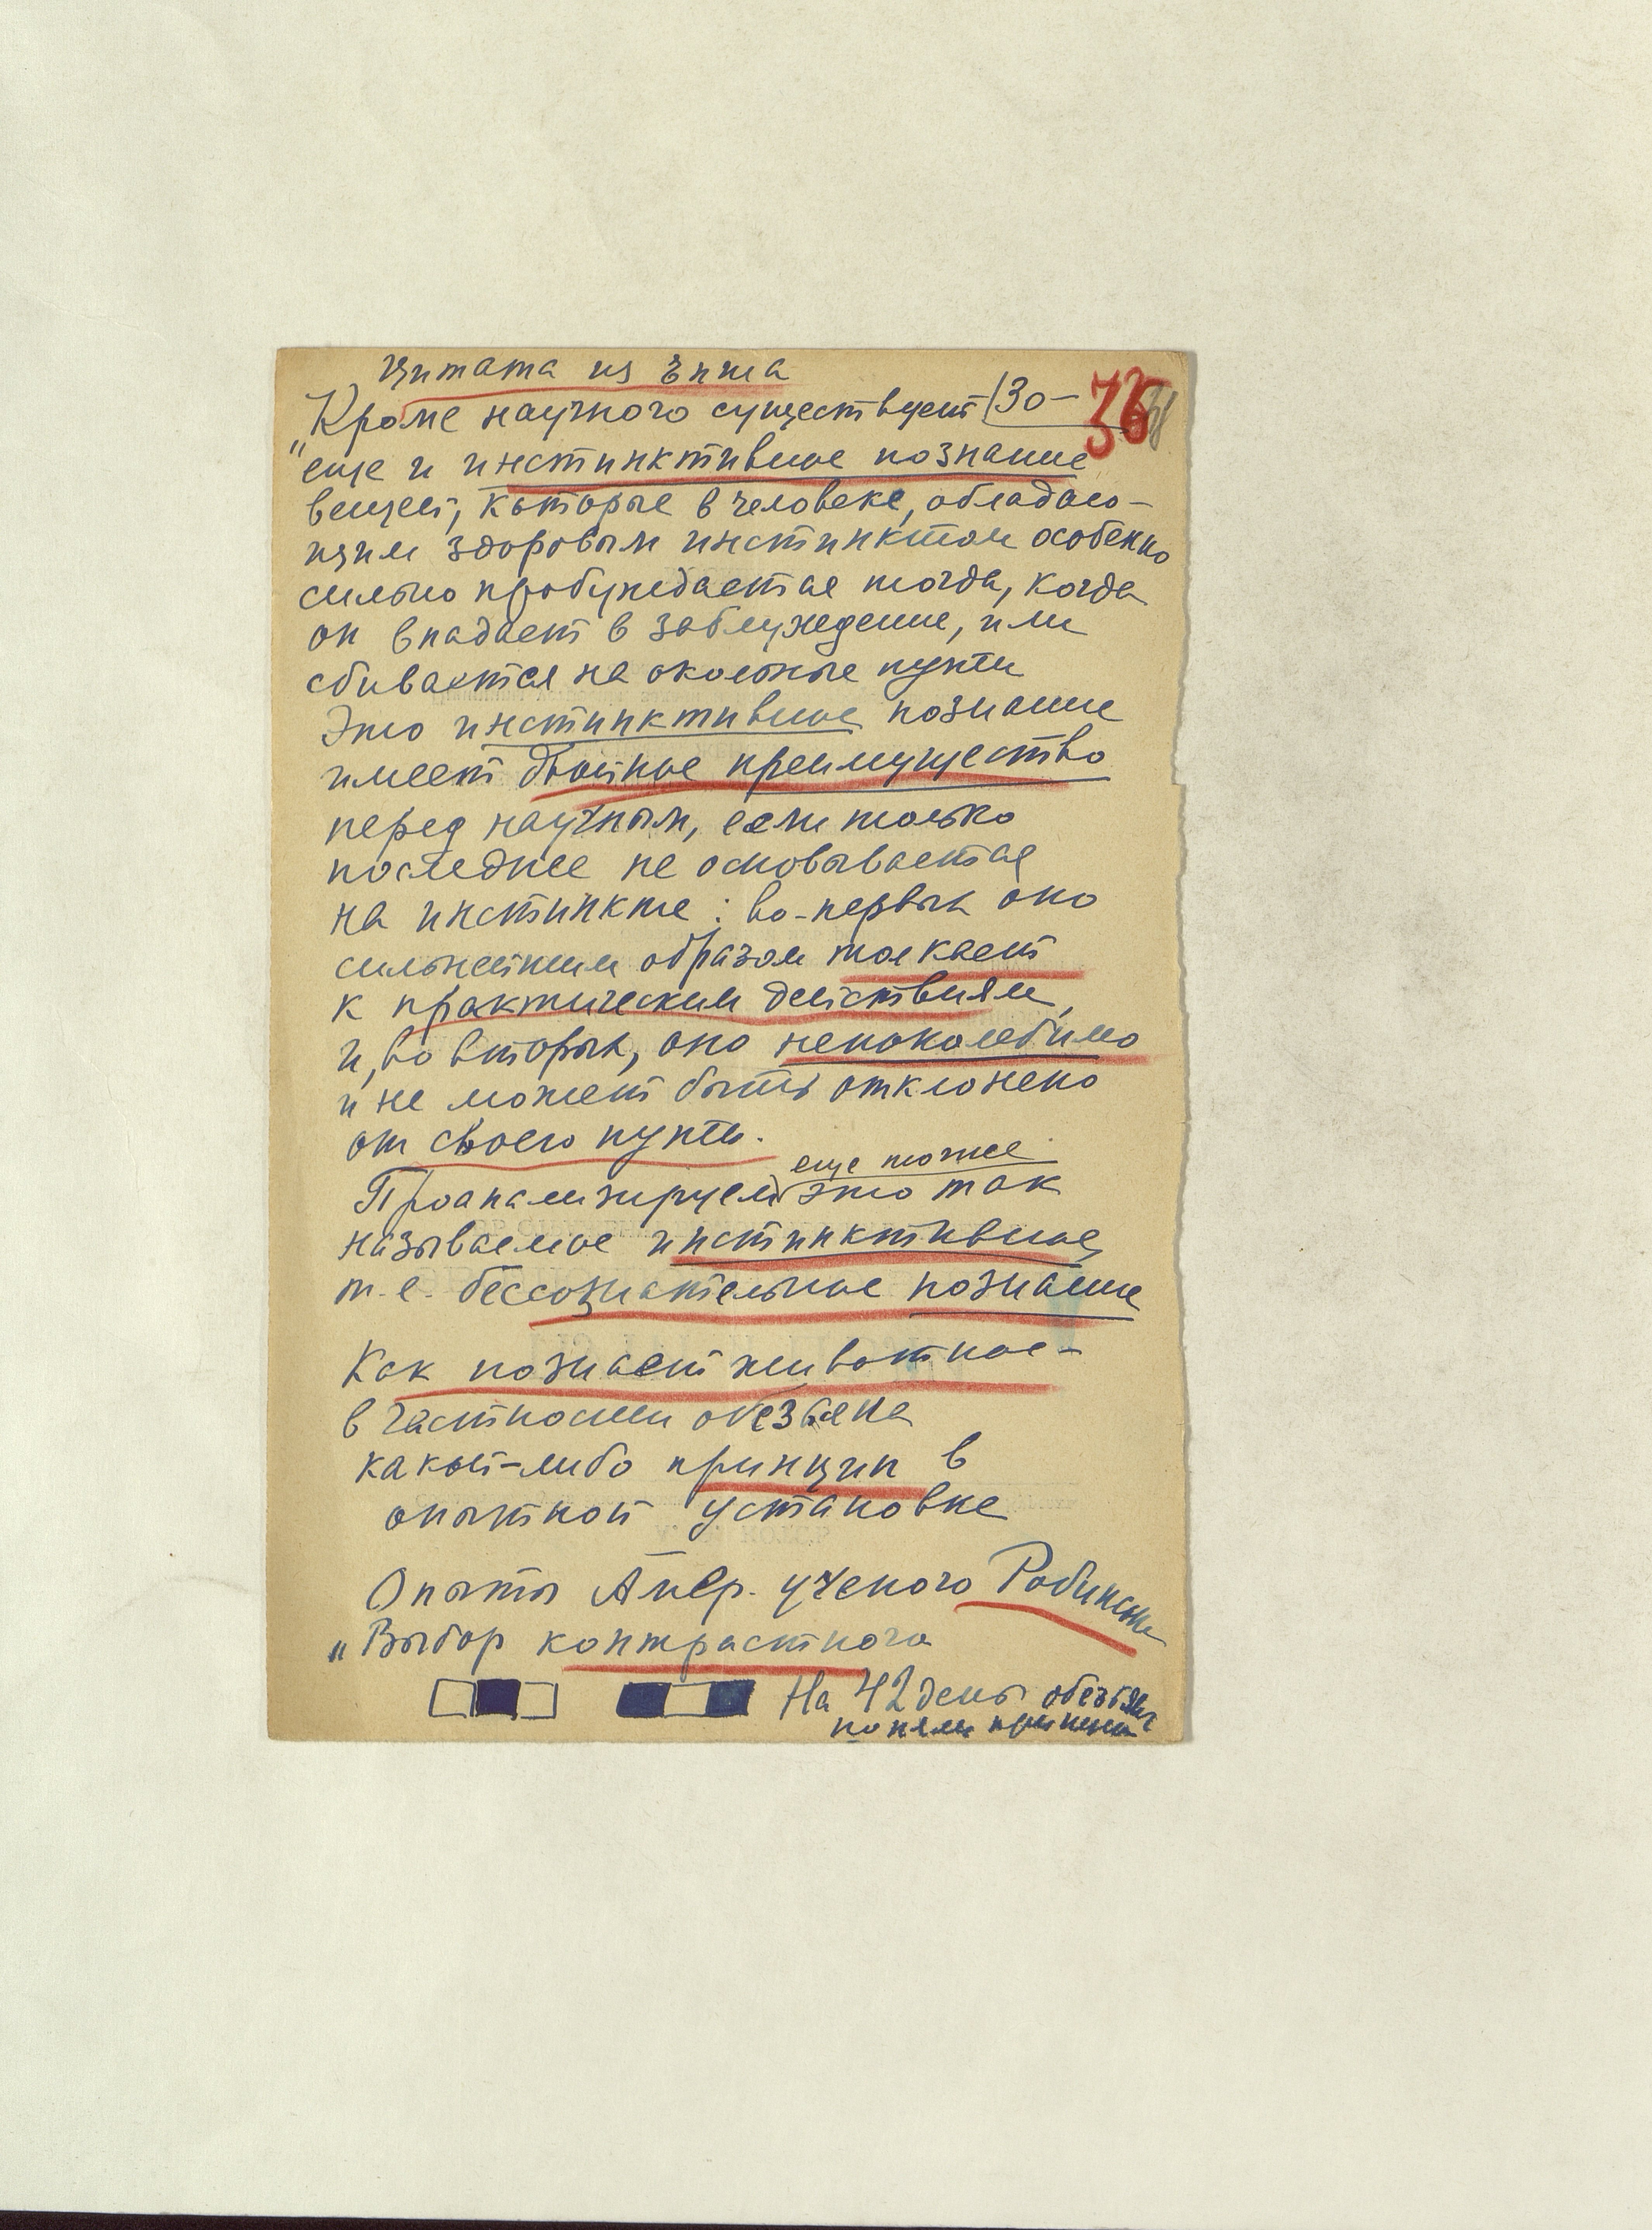 Цитата из Энша
30-
36
„Кроме научного существует
еще и инстинктивное познание
вещей, которые в человеке, обладаю-
щим здоровым инстинктом особенно
сильно пробуждается тогда, когда
он впадает в заблуждение, или
сбивается на окольные пути
Это инстинктивное познание
имеет двойное преимущество
перед научным, если только
последнее не основывается
на инстинкте: во-первых оно
сильнейшим образом толкает
к практическим действиям,
и, во вторых, оно непоколебимо
и не может быть отклонено
от своего пути.
еще тоже
Проанализируем это так
называемое инстинктивное,
т.е. бессознательное познание
Как познает животное-
в частности обезьяна
какой-либо принцип в
опытной установке
Опыты Амер. ученого Робинсон
„Выбор контрастного
На 42 день обезьян
поняли принцип